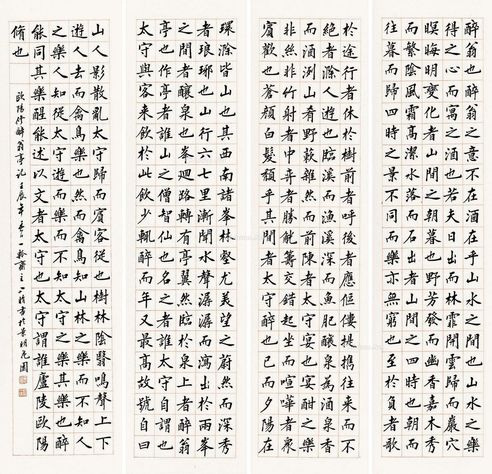 醉翁也醉翁之意不在酒在乎山水之間也山水之樂
得之心而寓之酒也若夫日出而林霏開雲歸而巖穴
暝晦明變化者山間之朝暮也野芳發而幽香嘉木秀
而繁陰風霜高潔水落而石出者山間之四時也朝而
往暮而歸四時之景不同而樂亦無窮也至於負者歌
於途行者休於樹前者呼後者應傴僂提攜往來而不
絕者滁人遊也臨溪而漁溪深而魚肥釀泉為酒泉香
而酒洌山肴野蔌雜然而前陳者太守宴也宴酣之樂
非絲非竹射者中弈者勝觥籌交錯起坐而喧嘩者衆
賓歡也蒼顏白髮頹乎其間者太守醉也已而夕陽在
環滁皆山也其西南諸峯林壑尤美望之蔚然而深秀
者琅琊也山行六七里漸聞水聲潺潺而瀉出於兩峯
之間者釀泉也峯迴路轉有亭翼然臨於泉上者醉翁
亭也作亭者誰山之僧智仙也名之者誰太守自謂也
太守與客來飲於此飲少輒醉而年又最高故號自曰
山人影散亂太守歸而賓客從也樹林陰翳鳴聲上下
遊人去而禽鳥樂也然而禽鳥知山林之樂而不知人
之樂人知從太守遊而樂而不知太守之樂其樂也醉
能同其樂醒能述以文者太守也太守謂誰廬陵歐陽
脩也
歐陽修醉翁亭記壬辰年